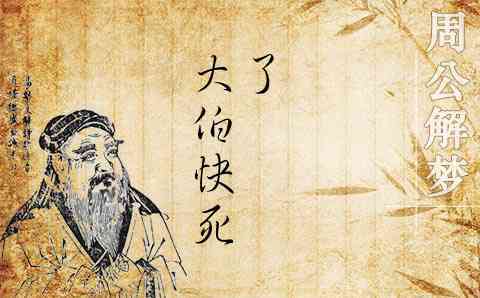 周公解梦
大伯快死
了